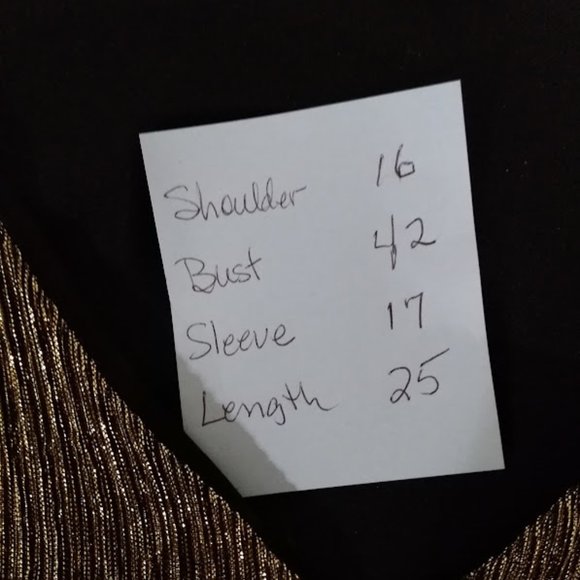 Shoulder 16
Bust 42
Sleeve 17
Length 25